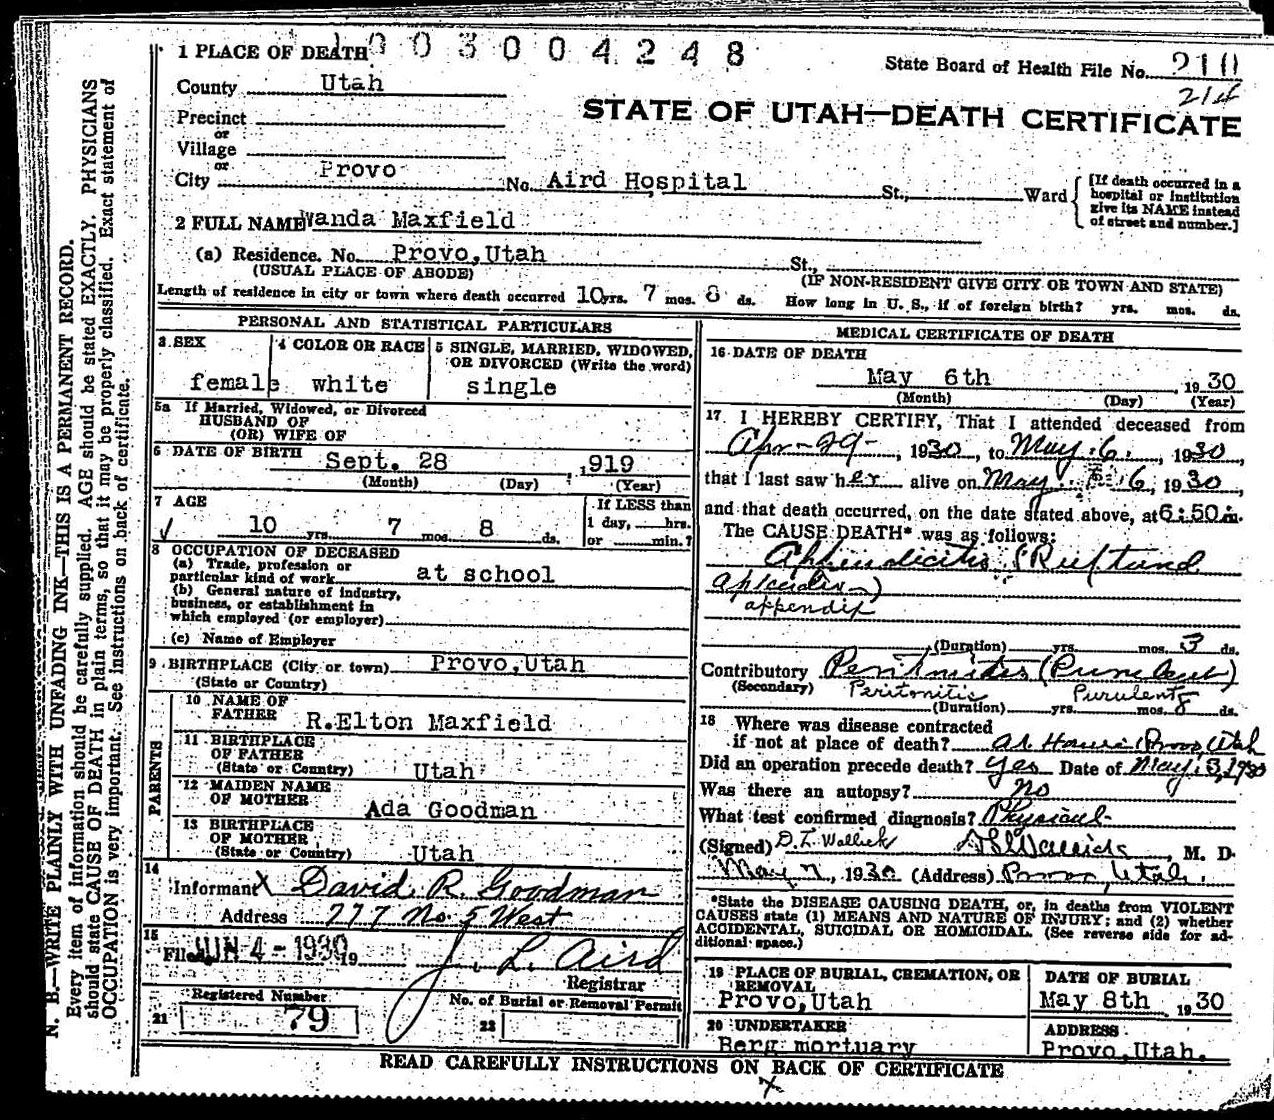 1 PLACE OF DEATH 1003004248
State Board of Health File No. 210
214
County Utah
STATE OF UTAH—DEATH CERTIFICATE
Precinct
or
Village
or
City Provo No. Aird Hospital St., Ward
[If death occurred in a hospital or institution give its NAME instead of street and number.]
2 FULL NAME Wanda Maxfield
(a) Residence. No. Provo, Utah St.,
(USUAL PLACE OF ABODE) (IF NON-RESIDENT GIVE CITY OR TOWN AND STATE)
Length of residence in city or town where death occurred 10 yrs. 7 mos. 8 ds. How long in U. S., if of foreign birth? yrs. mos. ds.
PERSONAL AND STATISTICAL PARTICULARS
3 SEX 4 COLOR OR RACE 5 SINGLE, MARRIED, WIDOWED,
OR DIVORCED (Write the word)
female white single
5a If Married, Widowed, or Divorced
HUSBAND OF
(OR) WIFE OF
6 DATE OF BIRTH Sept. 28 , 1919
(Month) (Day) (Year)
7 AGE If LESS than
10 yrs. 7 mos. 8 ds. 1 day, hrs.
or min.?
8 OCCUPATION OF DECEASED
(a) Trade, profession or
particular kind of work at school
(b) General nature of industry,
business, or establishment in
which employed (or employer)
(c) Name of Employer
9 BIRTHPLACE (City or town) Provo, Utah
(State or Country)
PARENTS
10 NAME OF
FATHER R. Elton Maxfield
11 BIRTHPLACE
OF FATHER
(State or Country) Utah
12 MAIDEN NAME
OF MOTHER Ada Goodman
13 BIRTHPLACE
OF MOTHER
(State or Country) Utah
14
Informant X David R. Goodman
Address 777 No. 5 West
15
Filed JUN 4 - 1930 19 J. L. Aird
Registrar
Registered Number No. of Burial or Removal Permit
21 79 22
MEDICAL CERTIFICATE OF DEATH
16 DATE OF DEATH
May 6th 1930
(Month) (Day) (Year)
17 I HEREBY CERTIFY, That I attended deceased from
Apr-29-, 1930, to May 6, 1930,
that I last saw her alive on May 6, 1930,
and that death occurred, on the date stated above, at 6:50 m.
The CAUSE DEATH* was as follows:
Appendicitis (Ruptured
appendix)
appendix
(Duration) yrs. mos. 3 ds.
Contributory Peritonitis (Purulent)
(Secondary) Peritonitis Purulent
(Duration) yrs. mos. 8 ds.
18 Where was disease contracted
if not at place of death? at Home Provo, Utah
Did an operation precede death? Yes Date of May 3, 1930
Was there an autopsy? No
What test confirmed diagnosis? Physical
(Signed) M. D.
May 7, 1930 (Address) Provo, Utah.
*State the DISEASE CAUSING DEATH, or, in deaths from VIOLENT
CAUSES state (1) MEANS AND NATURE OF INJURY; and (2) whether
ACCIDENTAL, SUICIDAL OR HOMICIDAL. (See reverse side for ad-
ditional space.)
19 PLACE OF BURIAL, CREMATION, OR
REMOVAL
Provo, Utah
DATE OF BURIAL
May 8th 1930
20 UNDERTAKER
Berg mortuary
ADDRESS
Provo, Utah.
READ CAREFULLY INSTRUCTIONS ON BACK OF CERTIFICATE
N. B.—WRITE PLAINLY WITH UNFADING INK—THIS IS A PERMANENT RECORD.
Every item of information should be carefully supplied. AGE should be stated EXACTLY. PHYSICIANS
should state CAUSE OF DEATH in plain terms, so that it may be properly classified. Exact statement of
OCCUPATION is very important. See instructions on back of certificate.